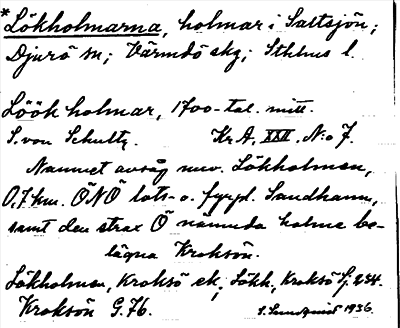 *Lökholmarna, holmar i Saltsjön;
Djurö sn; Värmdö skg; Sthlms l.
Löökholmar, 1700-tal. mitt.
S. von Schultz. Kr.A. XXII. N:o 7.
Namnet avsåg nuv. Lökholmen,
0,7 km. ÖNÖ lots- o. fyrpl. Sandhamn,
samt den strax Ö nämnda holme be-
lägna Kroksön.
Lökholmen, Kroksö ek; Lökh., Kroksö Sj. 234.
Kroksön G. 76. S. Lundquist 1936.